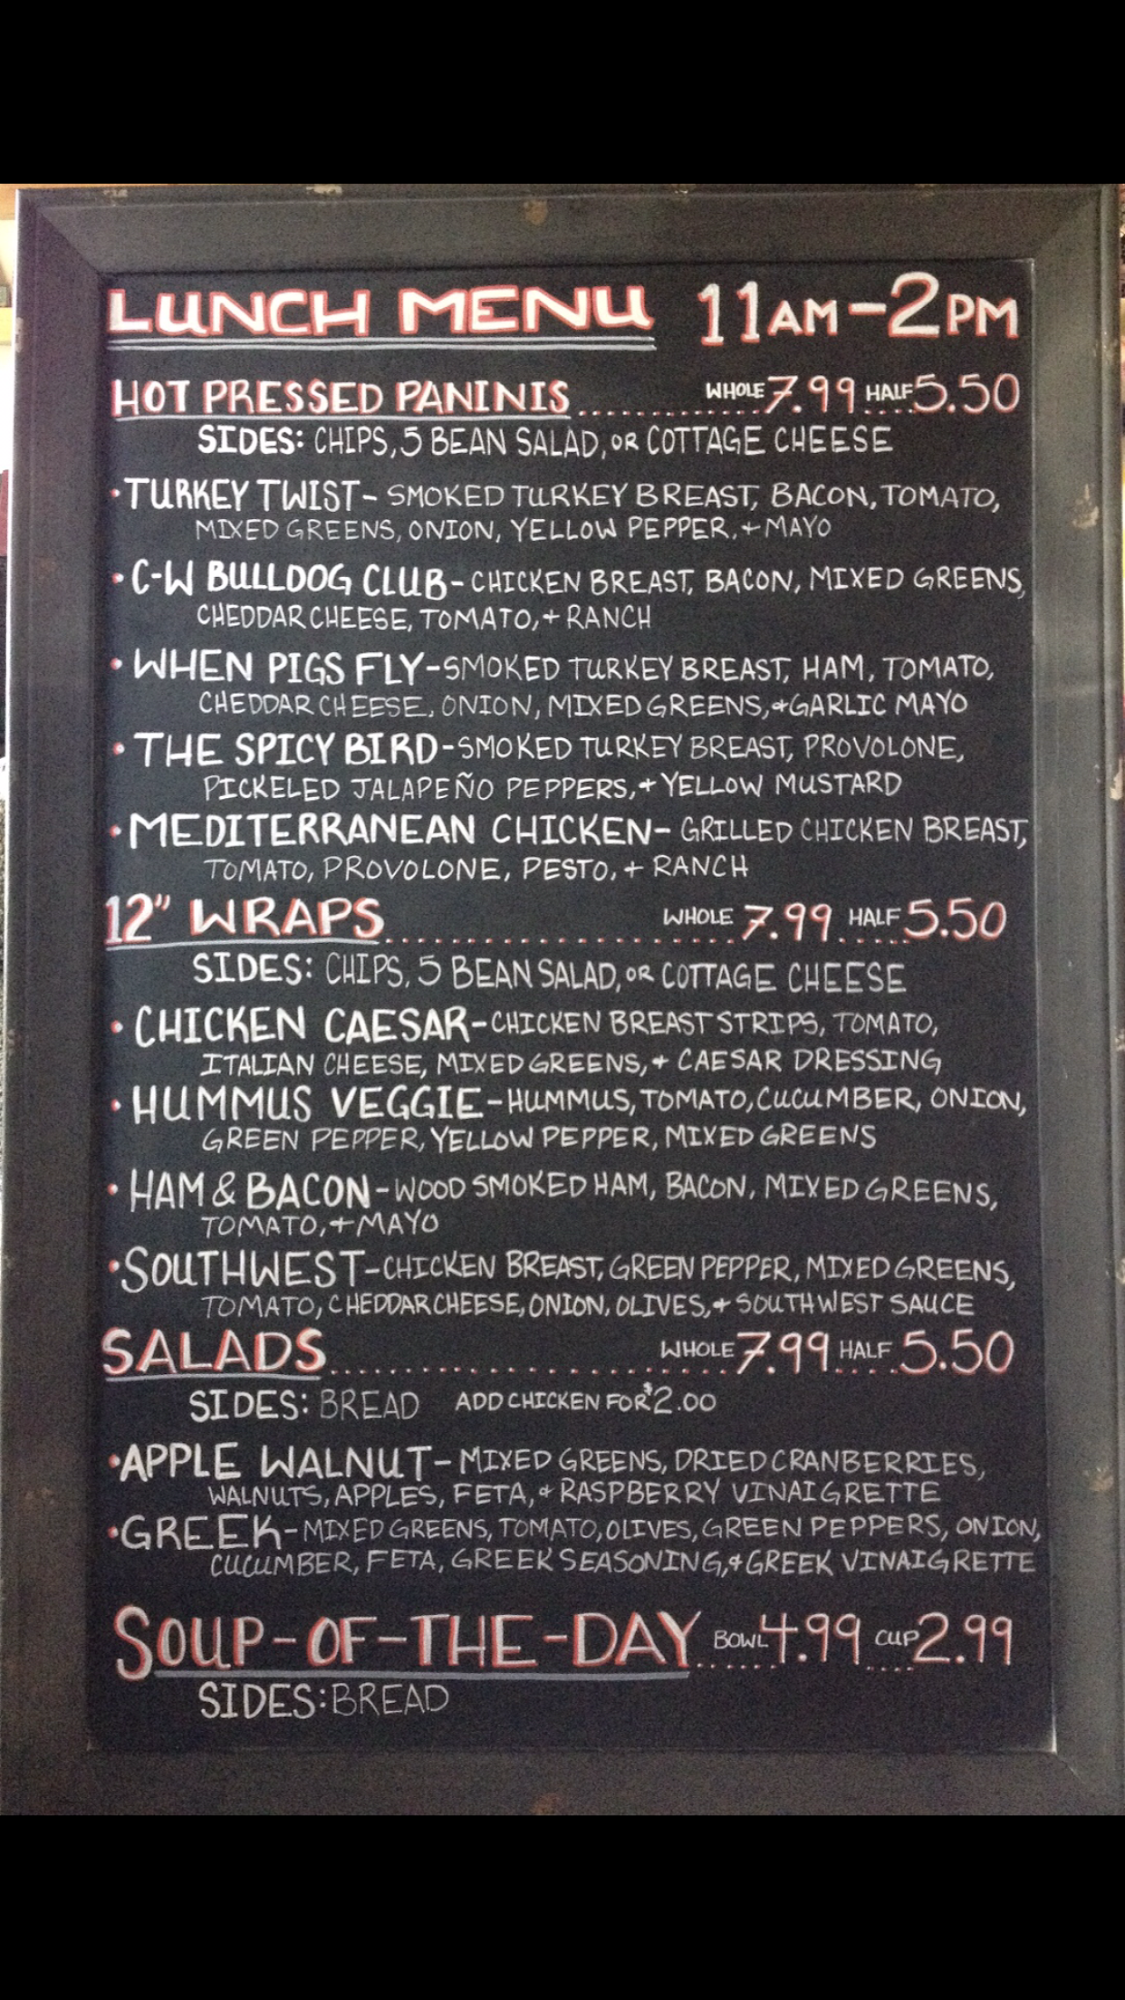 LUNCH MENU 11AM-2PM
HOT PRESSED PANINIS............WHOLE 7.99 HALF 5.50
SIDES: CHIPS, 5 BEAN SALAD, OR COTTAGE CHEESE
• TURKEY TWIST - SMOKED TURKEY BREAST, BACON, TOMATO,
MIXED GREENS, ONION, YELLOW PEPPER, + MAYO
• C-W BULLDOG CLUB - CHICKEN BREAST, BACON, MIXED GREENS,
CHEDDAR CHEESE, TOMATO, + RANCH
• WHEN PIGS FLY - SMOKED TURKEY BREAST, HAM, TOMATO,
CHEDDAR CHEESE, ONION, MIXED GREENS, + GARLIC MAYO
• THE SPICY BIRD - SMOKED TURKEY BREAST, PROVOLONE,
PICKELED JALAPEÑO PEPPERS, + YELLOW MUSTARD
• MEDITERRANEAN CHICKEN - GRILLED CHICKEN BREAST,
TOMATO, PROVOLONE, PESTO, + RANCH
12" WRAPS..................WHOLE 7.99 HALF 5.50
SIDES: CHIPS, 5 BEAN SALAD, OR COTTAGE CHEESE
• CHICKEN CAESAR - CHICKEN BREAST STRIPS, TOMATO,
ITALIAN CHEESE, MIXED GREENS, + CAESAR DRESSING
• HUMMUS VEGGIE - HUMMUS, TOMATO, CUCUMBER, ONION,
GREEN PEPPER, YELLOW PEPPER, MIXED GREENS
• HAM & BACON - WOOD SMOKED HAM, BACON, MIXED GREENS,
TOMATO, + MAYO
• SOUTHWEST - CHICKEN BREAST, GREEN PEPPER, MIXED GREENS,
TOMATO, CHEDDAR CHEESE, ONION, OLIVES, + SOUTHWEST SAUCE
SALADS..................WHOLE 7.99 HALF 5.50
SIDES: BREAD ADD CHICKEN FOR $2.00
• APPLE WALNUT - MIXED GREENS, DRIED CRANBERRIES,
WALNUTS, APPLES, FETA, + RASPBERRY VINAIGRETTE
• GREEK - MIXED GREENS, TOMATO, OLIVES, GREEN PEPPERS, ONION,
CUCUMBER, FETA, GREEK SEASONING, + GREEK VINAIGRETTE
SOUP-OF-THE-DAY BOWL 4.99 CUP 2.99
SIDES: BREAD